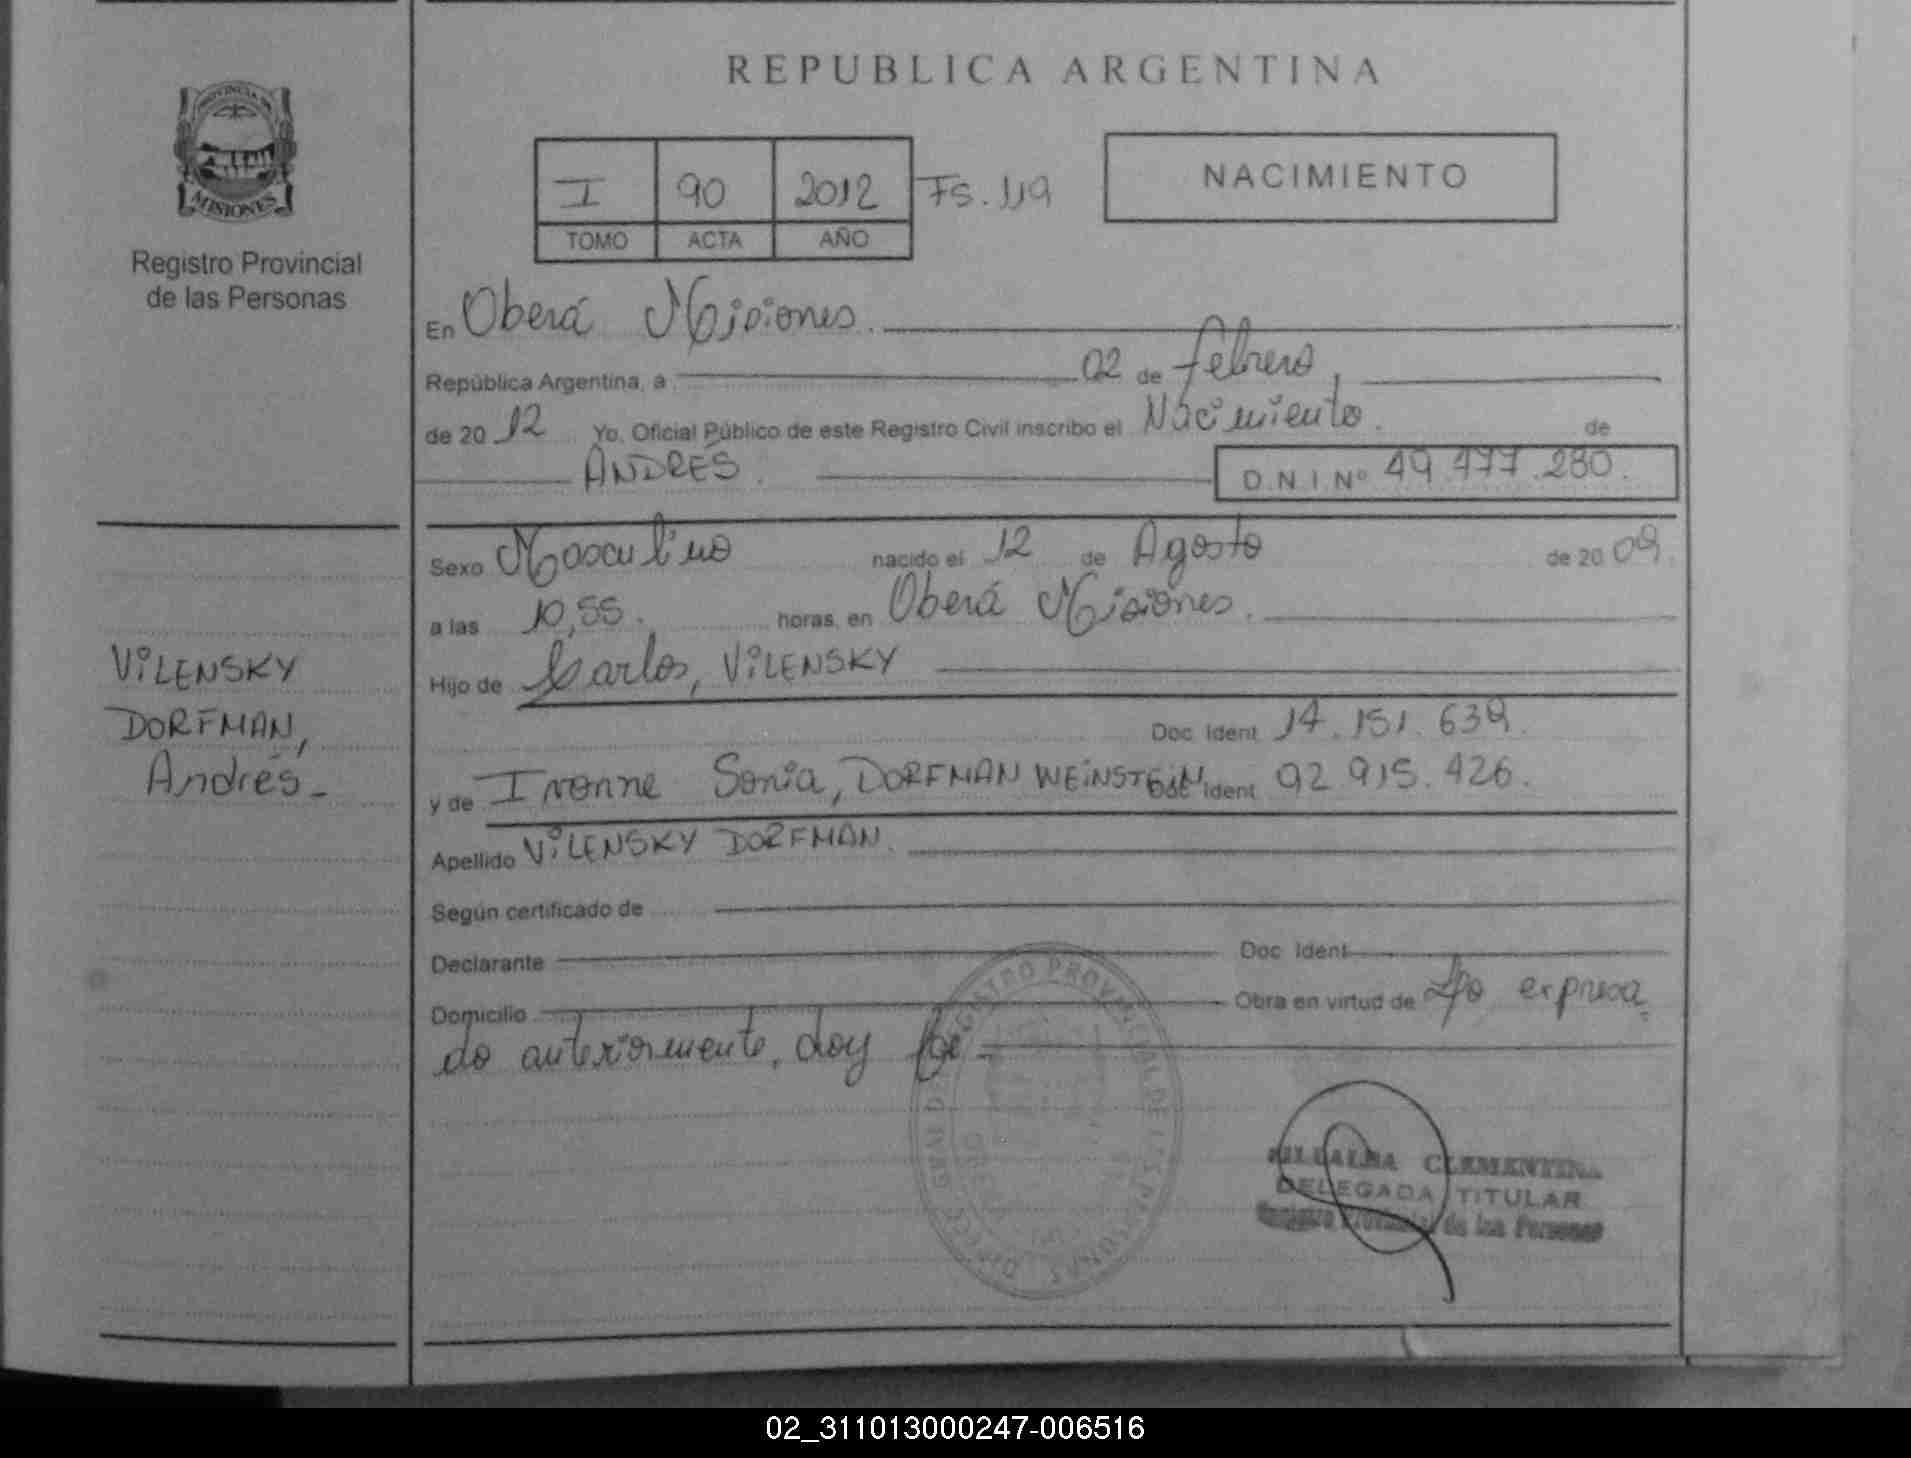 REPUBLICA ARGENTINA
PROVINCIA DE
MISIONES
Registro Provincial
de las Personas
I 90 2012 Fs. 119
TOMO ACTA AÑO
NACIMIENTO
En Oberá Misiones.
República Argentina, a 02 de febrero,
de 20 12 Yo, Oficial Público de este Registro Civil inscribo el Nacimiento. de
ANDRÉS. D.N.I. Nº 49.477.280.
Sexo Masculino nacido el 12 de Agosto de 20 09.
a las 10,55. horas, en Oberá Misiones.
Hijo de Carlos, VILENSKY
Doc. Ident. 14.151.639.
y de Ivonne Sonia, DORFMAN WEINSTEIN Doc. Ident. 92.915.426.
Apellido VILENSKY DORFMAN.
Según certificado de
Declarante Doc. Ident.
Domicilio Obra en virtud de Lo expresa
do anteriormente, doy fe -
VILENSKY
DORFMAN,
Andrés -
REGISTRO PROVINCIAL DE LAS PERSONAS
CLEMENTINA
DELEGADA TITULAR
Registro Provincial de las Personas
02_311013000247-006516